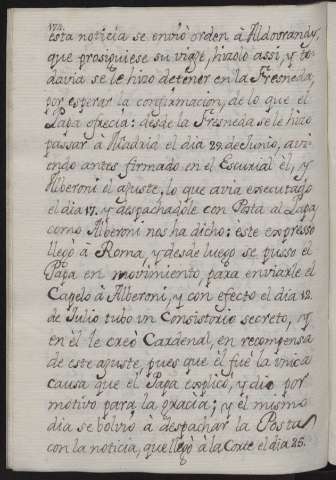 esta noticia se envió orden à Aldovrandi,
que prosiguiese su viage, hizolo assi, y to-
davia se le hizo detener en la Fresneda,
por esperar la confirmacion, de lo que el
Papa ofrecia: desde la Fresneda se le hizo
passar à Madrid el dia 29. de Junio, avi-
endo antes firmado en el Escurial él, y
Alberoni el ajuste, lo que avia executado
el dia 17. y despachadole con Posta al Papa
como Alberoni nos ha dicho: este expresso
llegò à Roma, y desde luego se pusso el
Papa en movimiento para enviarle el
Capelo à Alberoni, y con efecto el dia 12.
de Julio tubo un Consistorio secreto, y
en él le creò Cardenal, en recompensa
de este ajuste, pues que él fue la unica
causa que el Papa explicó, y dio por
motivo para la gracia; y el mismo
dia se bolvio à despachar la Posta
con la noticia, que llegò à la Corte el dia 25.